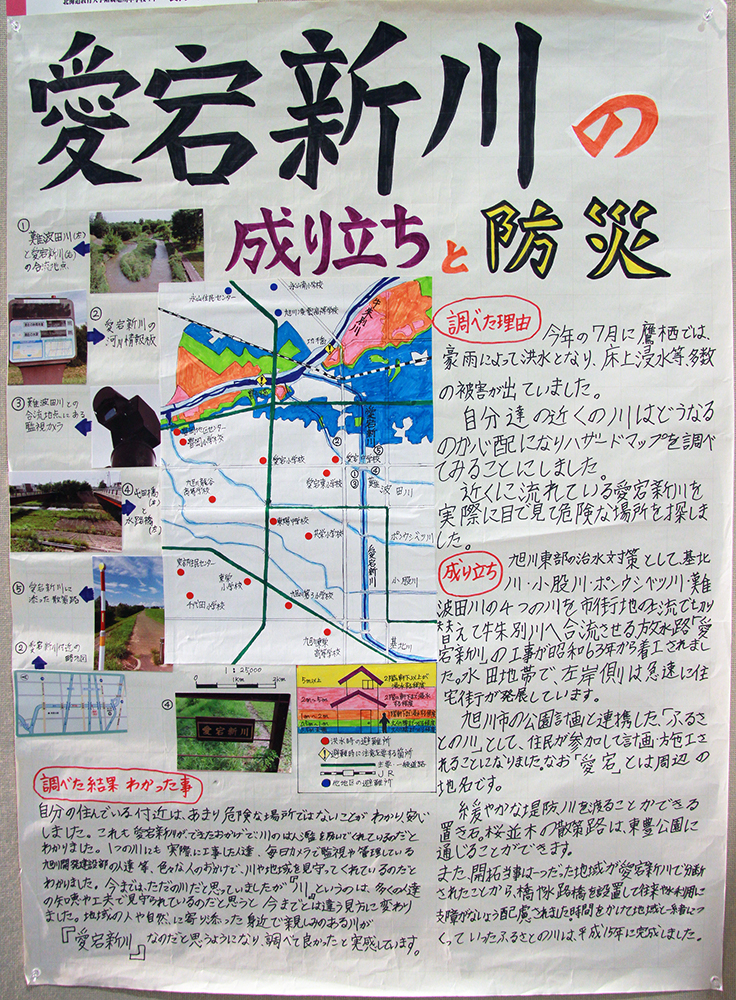 愛宕新川の
成り立ちと防災
①
難波田川(左)
と愛宕新川(右)
の合流地点
②
愛宕新川の
河川情報板
③
難波田川との
合流地点にある
監視カメラ
④
と
水路橋
(左)
⑤
愛宕新川に
添った散策路
②愛宕新川付近の
略地図
④
愛宕新川
永山住民センター
永山南小学校
牛朱別川
愛宕新川
愛宕小学校
愛宕中学校
愛宕東小学校
難波田川
東陽中学校
共栄小学校
ポンウシベツ川
東栄小学校
千代田小学校
旭川第3小学校
小股川
愛宕新川
基北川
1:25000
0 1km 2km
5m以上
2m〜5m
1m〜2m
洪水時の避難所
避難時に注意を要する箇所
主要・一般道路
JR
他地区の避難所
調べた理由
今年の7月に鷹栖では、
豪雨によって洪水となり、床上浸水等、多数
の被害が出ていました。
自分達の近くの川はどうなる
のか心配になりハザードマップを調べ
てみることにしました。
近くに流れている愛宕新川を
実際に目で見て危険な場所を探しま
した。
成り立ち
旭川東部の治水対策として、基北
川・小股川・ポンウシベツ川・難
波田川の4つの川を市街地の上流で切り
替えて牛朱別川へ合流させる放水路「愛
宕新川」の工事が昭和63年から着工されまし
た。水田地帯で、左岸側は急速に住
宅街が発展しています。
旭川市の公園計画と連携した、「ふるさ
との川」として、住民が参加して計画・施工さ
れることになりました。なお「愛宕」とは周辺の
地名です。
緩やかな堤防、川を渡ることができる
置き石、桜並木の散策路は、東豊公園に
通じることができます。
また、開拓当事は一つだった地域が愛宕新川で分断
されたことから、橋や水路橋を設置して往来や水利用に
支障がないよう配慮されました。時間をかけて地域と一緒につ
くっていったふるさとの川は、平成15年に完成しました。
調べた結果 わかった事
自分の住んでいる付近は、あまり危険な場所ではないことがわかり、安心
しました。これも愛宕新川ができたおかげで川のはん濫を防いでくれているのだと
わかりました。1つの川にも実際に工事した人達、毎日カメラで監視や管理している
旭川開発建設部の人達等、色々な人のおかげで、川や地域を見守ってくれているのだと
わかりました。今までは、ただの川だと思っていましたが『川』というのは、多くの人達
の知恵や工夫で見守られているのだと思うと今までとは違う見方に変わり
ました。地域の人や自然に寄り添った身近で親しみのある川が
『愛宕新川』なのだと思うようになり、調べて良かったと実感しています。